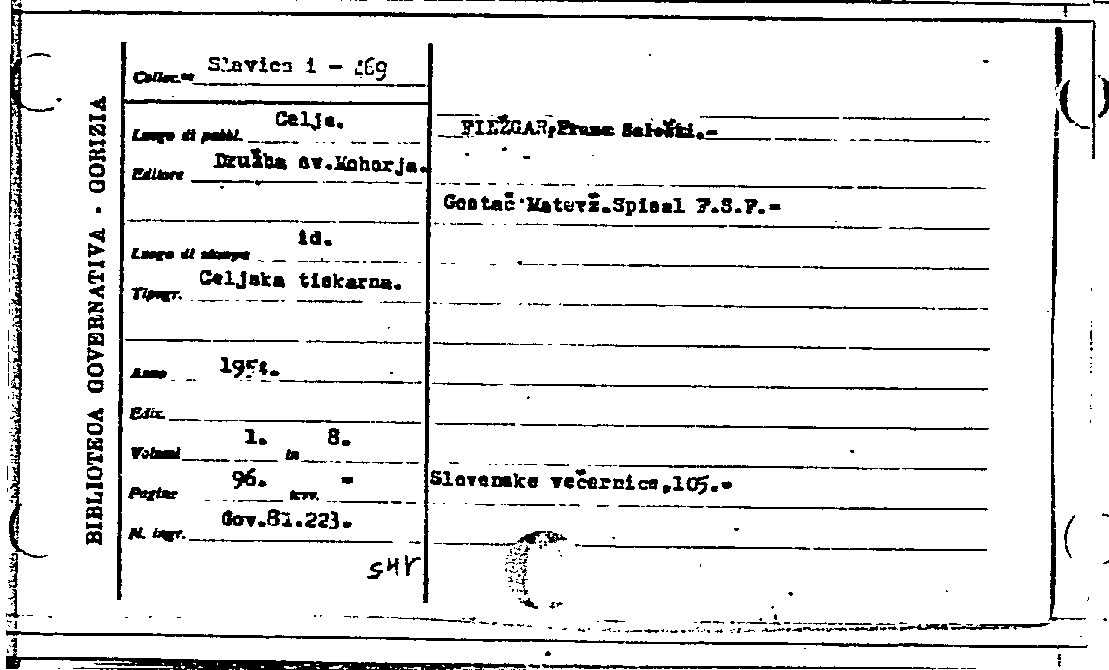 BIBLIOTECA GOVERNATIVA - GORIZIA
Colloc.ne Slavica 1 -
Luogo di pubbl. Celje.
Editore Družba sv.Mohorja.
Luogo di stampa id.
Tipogr. Celjska tiskarna.
Anno
Ediz.
Volumi 1. in 8.
Pagine 96. tavv. -
N. ingr. Gov.81.223.
FINŽGAR,Franc Saleški.-
Gostač Matevž.Spisal F.S.F.-
Slovenske večernice,105.-